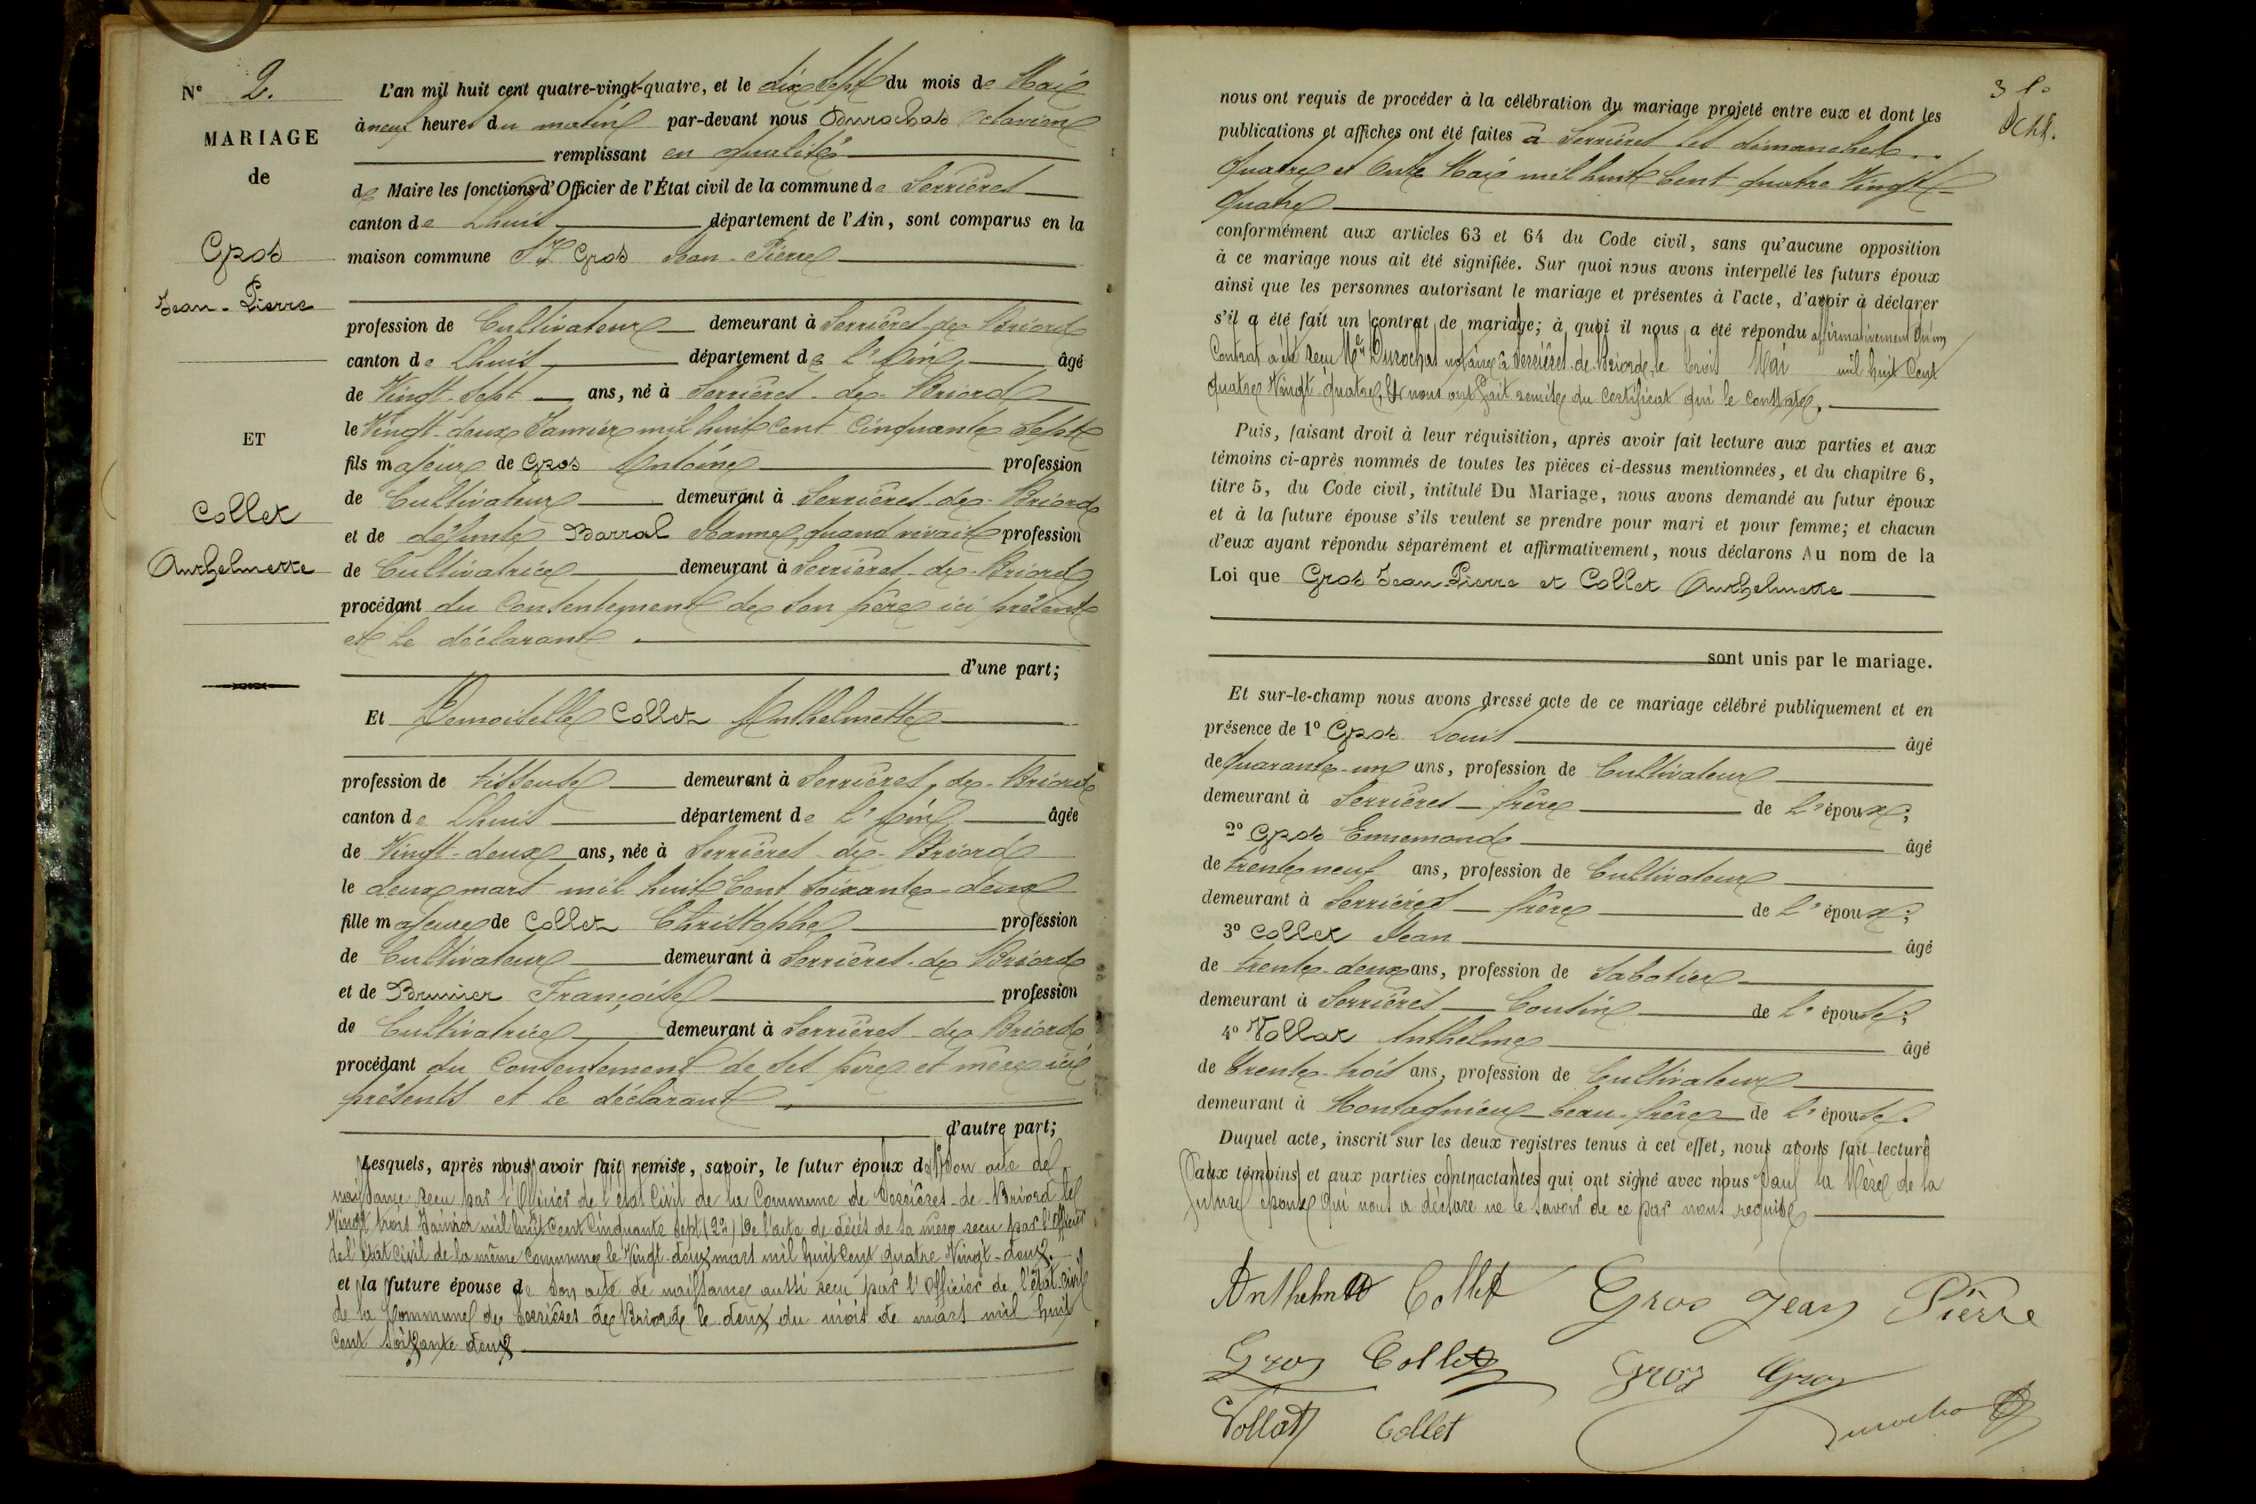 N° 2.
MARIAGE
de
Gros
Jean-Pierre
ET
Collet
Anthelmette
L'an mil huit cent quatre-vingt-quatre, et le dix Sept du mois de Mai
à neuf heures du matin par-devant nous Durochat Octavien
remplissant en qualité
de Maire les fonctions d'Officier de l'État civil de la commune de Serrières
canton de Lhuis département de l'Ain, sont comparus en la
maison commune Gros Jean-Pierre
profession de Cultivateur demeurant à Serrières-de-Briord
canton de Lhuis département de l'Ain âgé
de Vingt-Sept ans, né à Serrières-de-Briord
le Vingt-deux Janvier mil huit Cent Cinquante Sept
fils majeur de Gros Antoine profession
de Cultivateur demeurant à Serrières-de-Briord
et de défunte Barral Jeanne, quand vivait profession
de Cultivatrice demeurant à Serrières-de-Briord
procédant du Consentement de son père ici présent
et le déclarant.
d'une part;
Et Demoiselle Collet Anthelmette
profession de tisseuse demeurant à Serrières-de-Briord
canton de Lhuis département de l'Ain âgée
de Vingt-deux ans, née à Serrières-de-Briord
le deux mars mil huit Cent Soixante-deux
fille majeure de Collet Christophe profession
de Cultivateur demeurant à Serrières-de-Briord
et de Brunier Françoise profession
de Cultivatrice demeurant à Serrières-de-Briord
procédant du Consentement de ses père et mère ici
présents et le déclarant.
d'autre part;
Lesquels, après nous avoir fait remise, savoir, le futur époux de son acte de
naissance recu par l'Officier de l'état Civil de la Commune de Serrières-de-Briord le
Vingt trois Janvier mil huit cent Cinquante Sept (2°) De l'acte de décès de sa mère recu par l'Officier
de l'état Civil de la même Commune le Vingt-deux mars mil huit Cent quatre-Vingt-deux.
et la future épouse de son acte de naissance aussi recu par l'Officier de l'état-civil
de la Commune de Serrières de Briord le deux du mois de mars mil huit
cent soixante deux
3 f.
nous ont requis de procéder à la célébration du mariage projeté entre eux et dont les
publications et affiches ont été faites à Serrières les dimanches
Quatre et Onze Mai mil huit Cent quatre Vingt
Quatre
conformément aux articles 63 et 64 du Code civil, sans qu'aucune opposition
à ce mariage nous ait été signifiée. Sur quoi nous avons interpellé les futurs époux
ainsi que les personnes autorisant le mariage et présentes à l'acte, d'avoir à déclarer
s'il a été fait un contrat de mariage; à quoi il nous a été répondu affirmativement Qu'un
Contrat a été recu Me Durochat notaire à Serrières-de-Briord, le trois Mai mil huit Cent
quatre Vingt-quatre, Et nous ont fait remise du certificat qui le constate.
Puis, faisant droit à leur réquisition, après avoir fait lecture aux parties et aux
témoins ci-après nommés de toutes les pièces ci-dessus mentionnées, et du chapitre 6,
titre 5, du Code civil, intitulé Du Mariage, nous avons demandé au futur époux
et à la future épouse s'ils veulent se prendre pour mari et pour femme; et chacun
d'eux ayant répondu séparément et affirmativement, nous déclarons Au nom de la
Loi que Gros Jean-Pierre et Collet Anthelmette
sont unis par le mariage.
Et sur-le-champ nous avons dressé acte de ce mariage célébré publiquement et en
présence de 1° Gros Louis âgé
de Quarante-un ans, profession de Cultivateur
demeurant à Serrières frère de l'époux;
2° Gros Ennemond âgé
de trente neuf ans, profession de Cultivateur
demeurant à Serrières frère de l'époux;
3° Collet Jean âgé
de trente-deux ans, profession de Sabotier
demeurant à Serrières Cousin de l'épouse;
4° Vollat Anthelme âgé
de trente-trois ans, profession de Cultivateur
demeurant à Montagnieu beau-frère de l'épouse.
Duquel acte, inscrit sur les deux registres tenus à cet effet, nous avons fait lecture
aux témoins et aux parties contractantes qui ont signé avec nous Sauf la Mère de la
future épouse qui nous a déclaré ne le savoir de ce par nous requise
Anthelmette Collet Gros Jean Pierre
Gros Collet Gros Gros
Vollat Collet Durochat